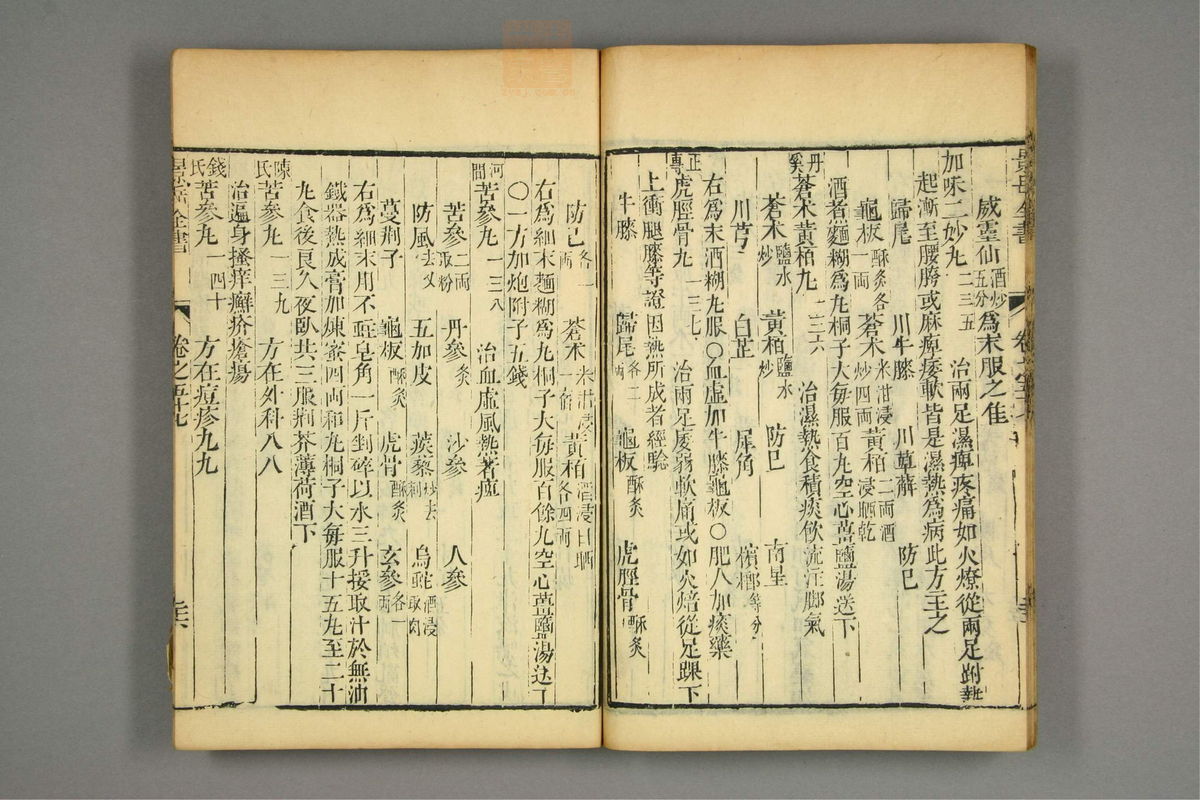 威靈仙酒炒五分爲末服之佳
加味二妙丸二三五 治兩足濕痺疼痛如火燎從兩足跗熱
起漸至腰胯或麻痺痿軟皆是濕熱爲病此方主之
歸尾 川牛膝 川萆薢 防巳
龜板酥炙各一兩 蒼朮米泔浸炒四兩 黃柏二兩酒浸晒乾
酒煮麵糊爲丸桐子大每服百丸空心薑鹽湯送下
丹溪蒼朮黃柏丸一三六 治濕熱食積痰飲流注脚氣
蒼朮鹽水炒 黃柏鹽水炒 防巳 南星
川芎 白芷 犀角 檳榔等分
右爲末酒糊丸服〇血虛加牛膝龜板〇肥人加痰藥
正專虎脛骨丸一三七 治兩足痿弱軟痛或如火焙從足踝下
上衝腿膝等證因熱所成者經驗
牛膝 歸尾各二兩 龜板酥炙 虎脛骨酥炙
防己各一兩 蒼朮米泔浸一宿 黃柏酒浸日晒各四兩
右爲細末麵糊爲丸桐子大每服百餘丸空心薑鹽湯送下
〇一方加炮附子五錢
河間苦參丸一三八 治血虛風熱著痺
苦參二兩取粉 丹參炙 沙參 人參
防風去叉 五加皮 蒺藜炒去刺 烏蛇酒浸取肉
蔓荆子 龜板酥炙 虎骨酥炙 玄參各一兩
右爲細末用不蛀皂角一斤剉碎以水三升挼取汁於無油
鐵器熬成膏加煉蜜四兩和丸桐子大每服十五丸至二十
丸食後良久夜臥共三服荆芥薄荷酒下
陳氏苦參丸一三九 方在外科八八
治遍身搔痒癬疥瘡瘍
錢氏苦參丸一四十 方在痘疹九九
景岳全書 卷之五十七